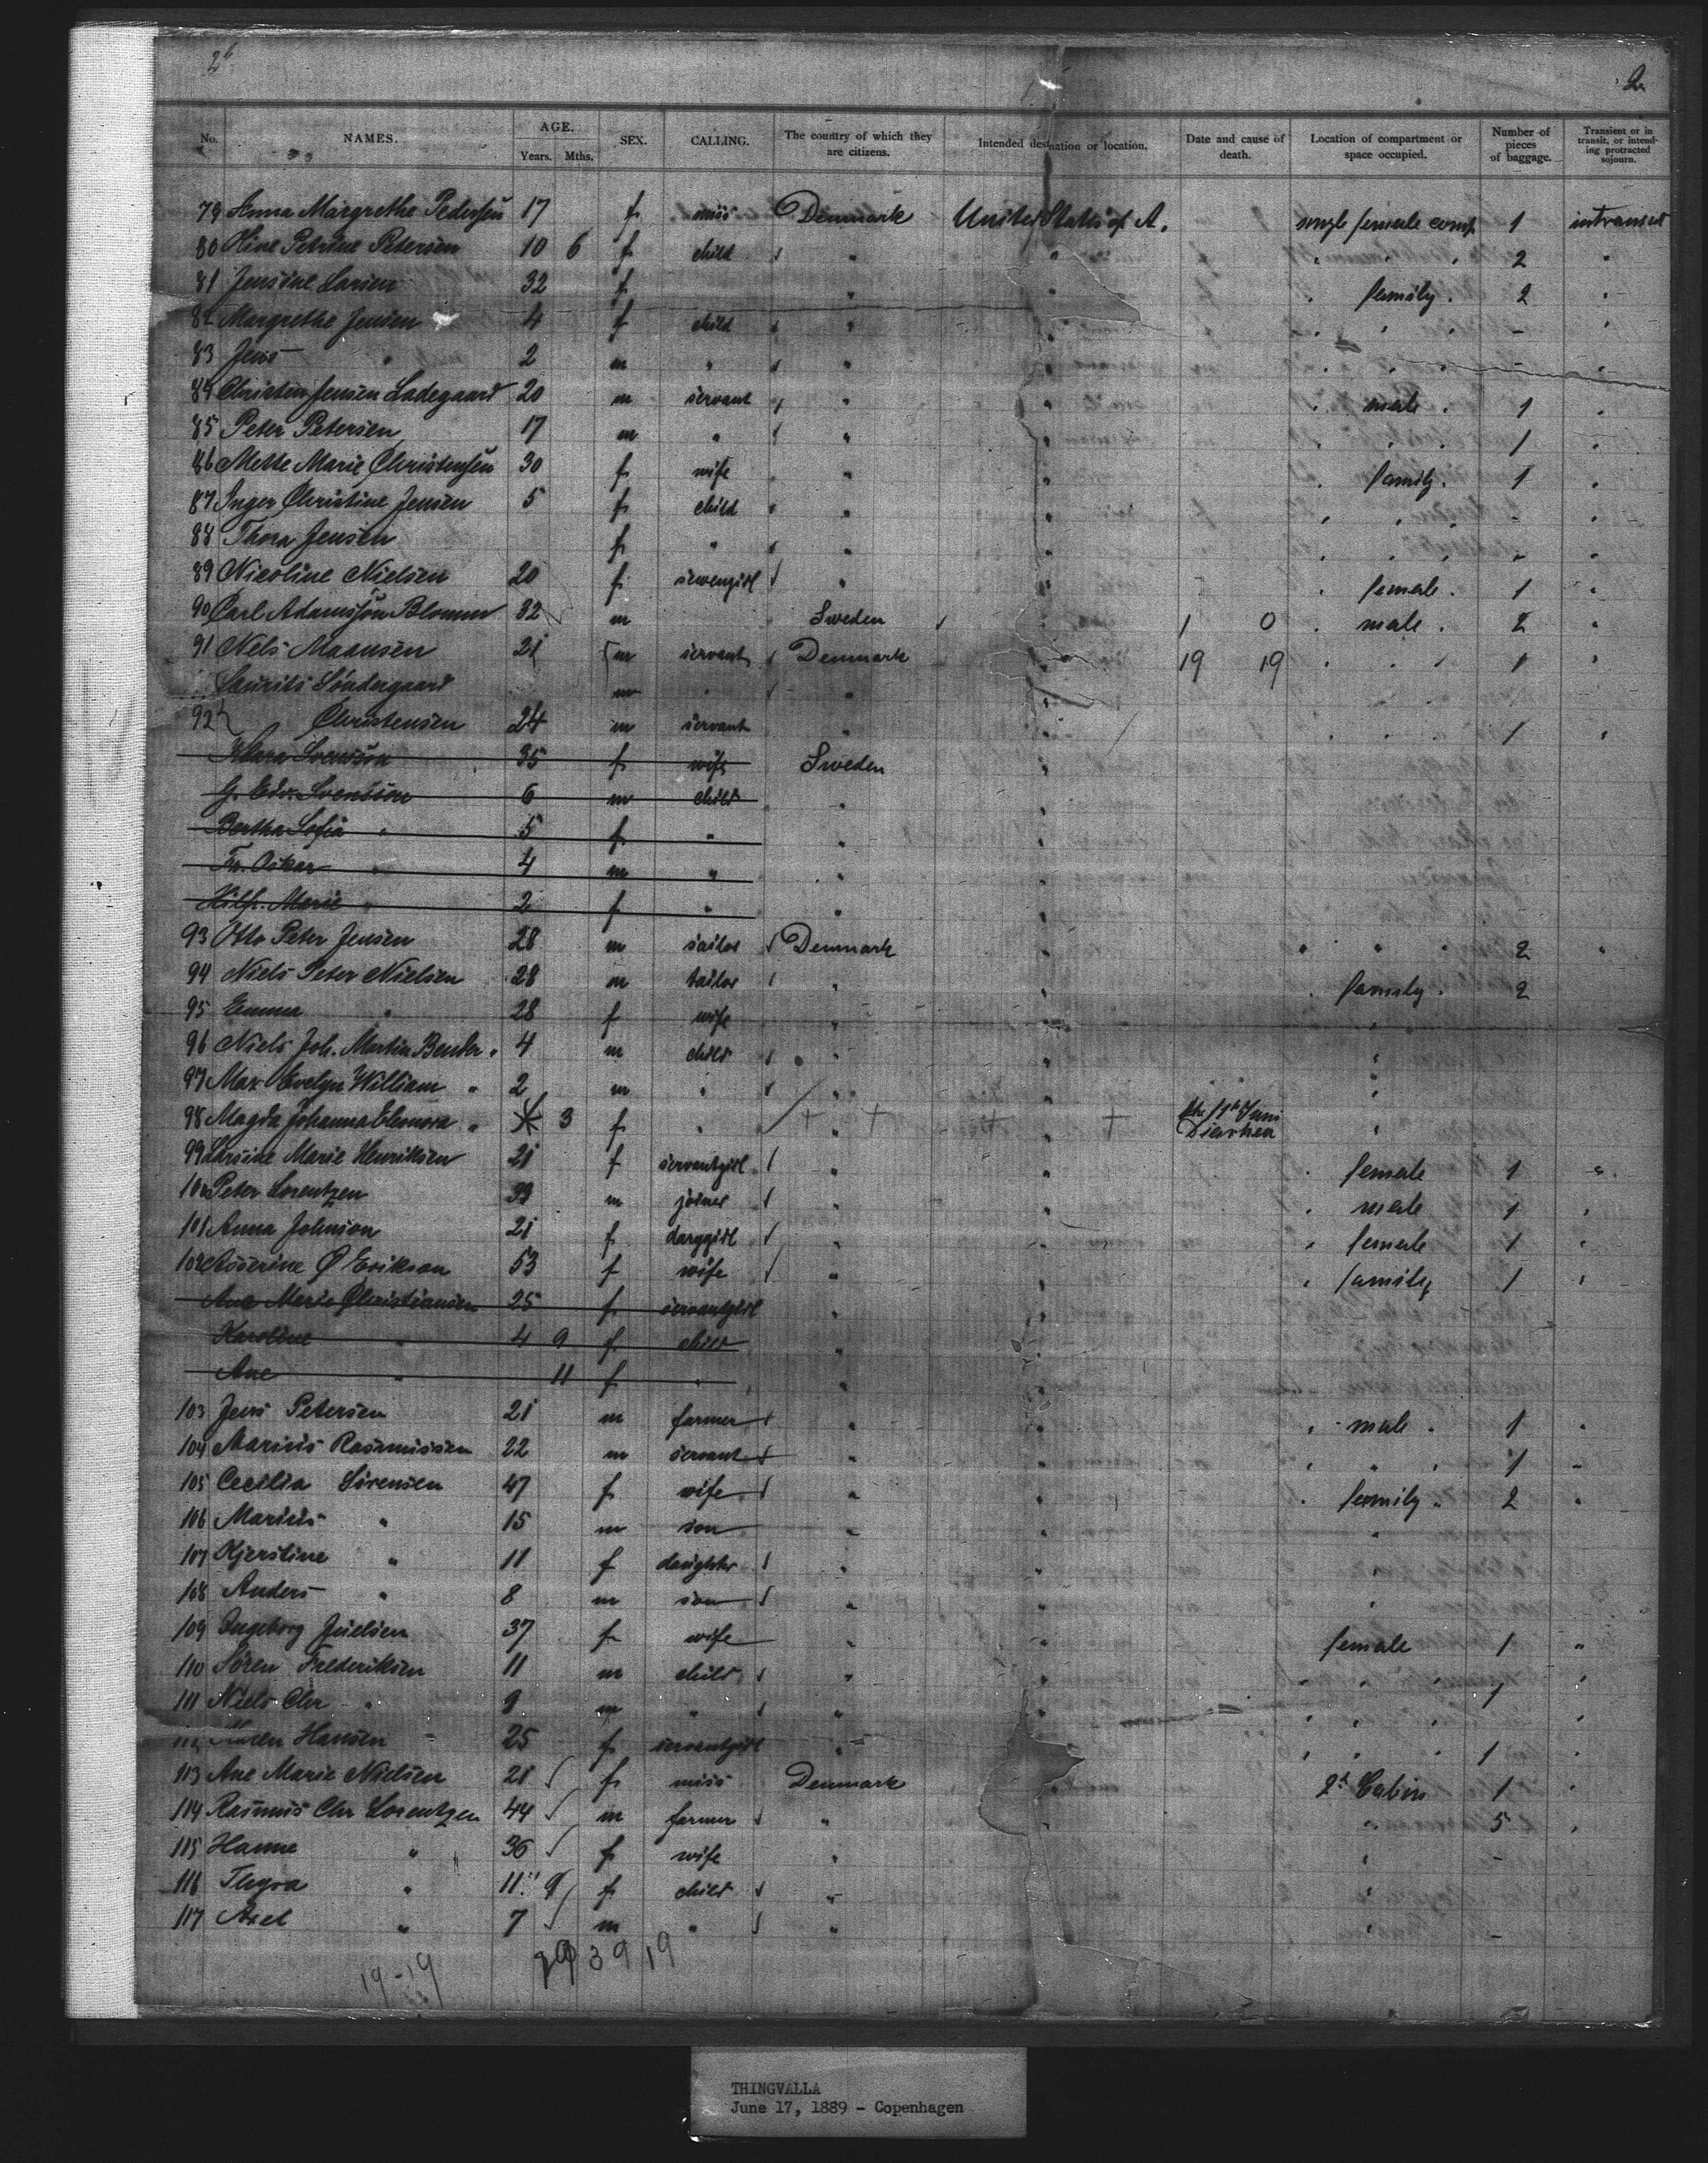 2b
2
No. NAMES. AGE. Years. Mths. SEX. CALLING. The country of which they are citizens. Intended destination or location. Date and cause of death. Location of compartment or space occupied. Number of pieces of baggage. Transient or in transit, or intending protracted sojourn.
79 Anna Margrethe Pedersen 17 f miss Denmark United States of A. single female comp 1 intransit
80 Petrine Petersen 10 6 f child " " " " " 2 "
81 Jensine Larsen 32 f " " " family . 2 "
82 Margrethe Jensen 4 f child " " " " " - "
83 Jens " 2 m " " " " " " - "
84 Christen Jensen Ladegaard 20 m servant " " " male . 1 "
85 Peter Petersen 17 m " " " " " " 1 "
86 Mette Marie Christensen 30 f wife " " " family . 1 "
87 Inger Christine Jensen 5 f child " " " " " - "
88 Thora Jensen f " " " " " " - "
89 Nicoline Nielsen 20 f sewengirl " " " female . 1 "
90 Carl Adamsson Blomm 32 m Sweden " 1 0 " male . 2 "
91 Nels Maansen 21 m servant Denmark " 19 19 " " " 1 "
Laurits Söndergaard m " " "
92 Christensen 24 m servant " " " " " 1 "
Klara Svensson 35 f wife Sweden "
G. Edv. Svensson 6 m child " "
Bertha Sofia " 5 f " " "
Fr. Oskar " 4 m " " "
Hilf. Marie " 2 f " " "
93 Otto Peter Jensen 28 m sailor Denmark " " " " 2 "
94 Niels Peter Nielsen 28 m tailor " " " family . 2
95 Emma " 28 f wife " " "
96 Niels Joh. Martin Bender " 4 m child " " "
97 Max Evelyn William " 2 m " " " "
98 Magda Johanna Eleonora " 3 f " " " the Juni Diarhea "
99 Larsine Marie Henriksen 21 f servantgirl " " " female 1 "
100 Peter Lorentzen 33 m joiner " " " male 1 "
101 Anna Johnson 21 f darygirl " " " female 1 "
102 Asserine Ø Erikson 53 f wife " " " family 1 "
Ane Marie Christiansen 25 f servantgirl " "
Karoline " 4 9 f child " "
Ane " 11 f " " "
103 Jens Petersen 21 m farmer " " " male . 1 "
104 Marius Rasmussen 22 m servant " " " " " 1 "
105 Cecilia Sörensen 47 f wife " " " family " 2 "
106 Marius " 15 m son " " "
107 Kjerstine " 11 f daughter " " "
108 Anders " 8 m son " " "
109 Ingeborg Juelsen 37 f wife " " female 1 "
110 Sören Frederiksen 11 m child " " " " " "
111 Niels Chr " 9 m " " " " " " 1 "
112 Karen Hansen 25 f servantgirl " " " " " 1 "
113 Ane Marie Nielsen 21 f miss Denmark 2d Cabin 1 "
114 Rasmus Chr Lorentzen 44 m farmer " " " 5 "
115 Hanne " 36 f wife " " -
116 Thyra " 11 9 f child " "
117 Axel " 7 m " " " -
19-19
39 19
THINGVALLA
June 17, 1889 - Copenhagen